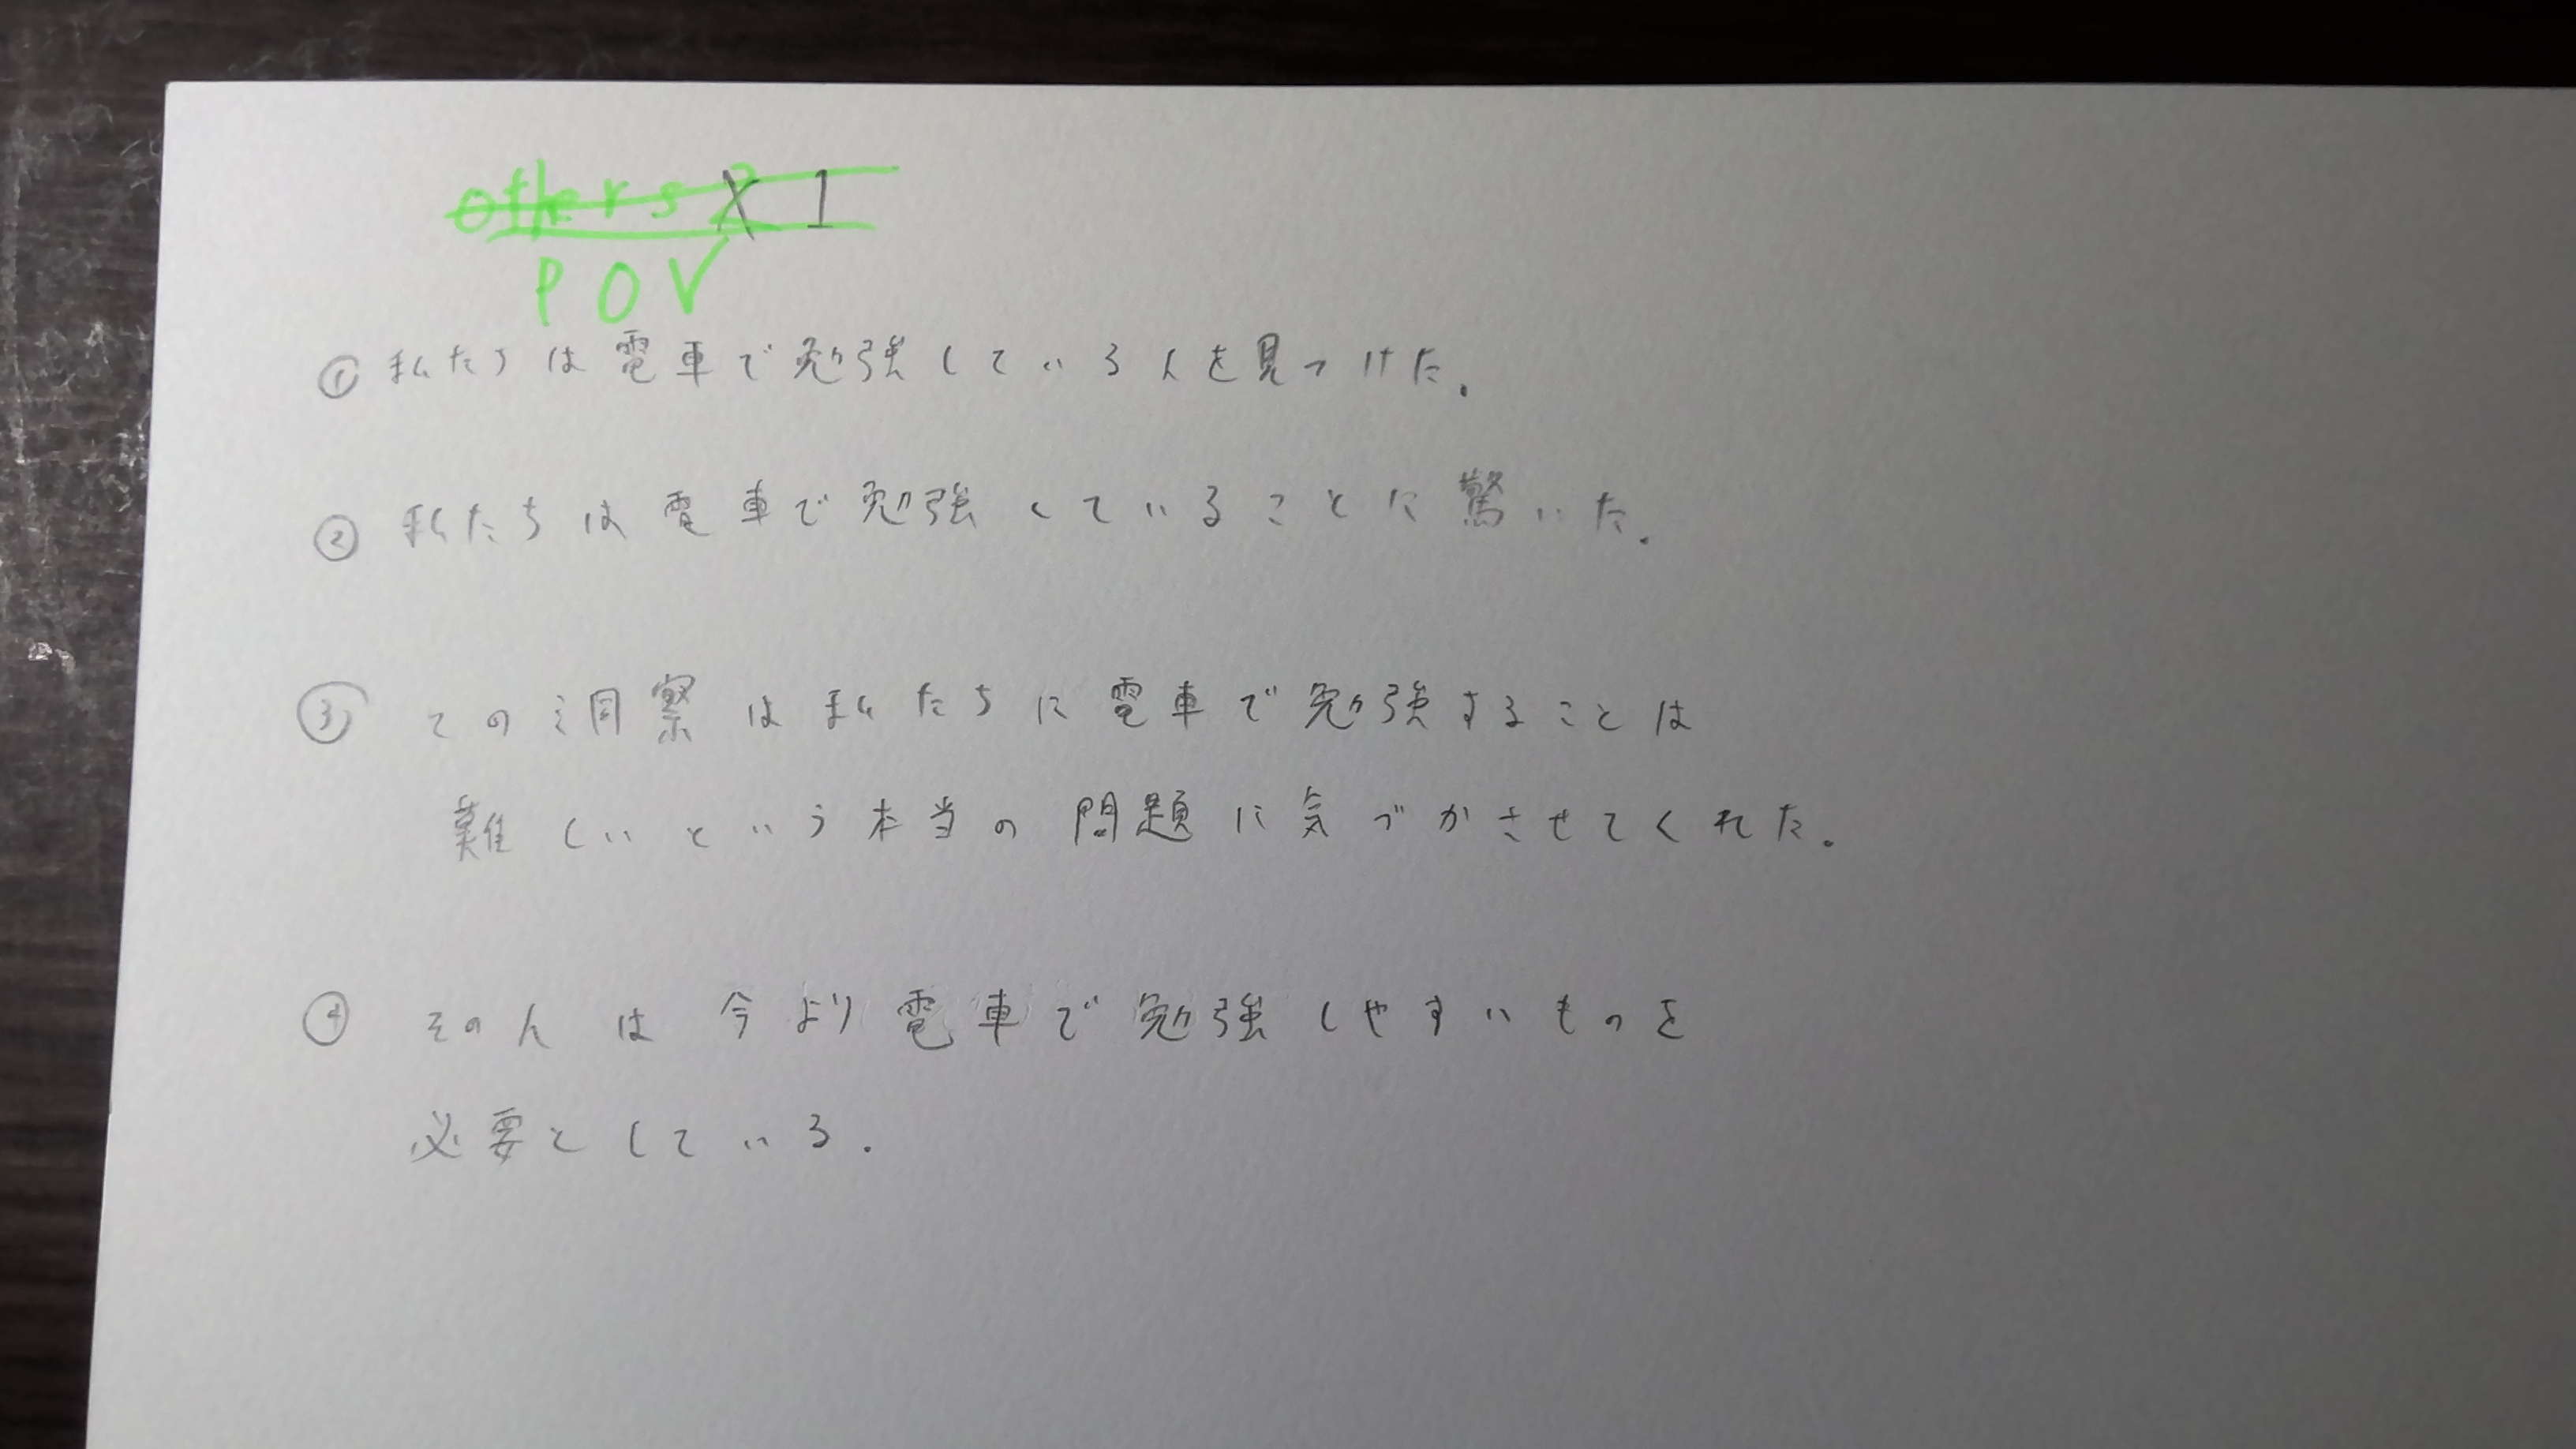 others 2 1
POV
① 私たちは電車で勉強している人を見つけた.
② 私たちは電車で勉強していることに驚いた.
③ この洞察は私たちに電車で勉強することは
難しいという本当の問題に気づかさせてくれた.
④ その人は今より電車で勉強しやすいものを
必要としている.